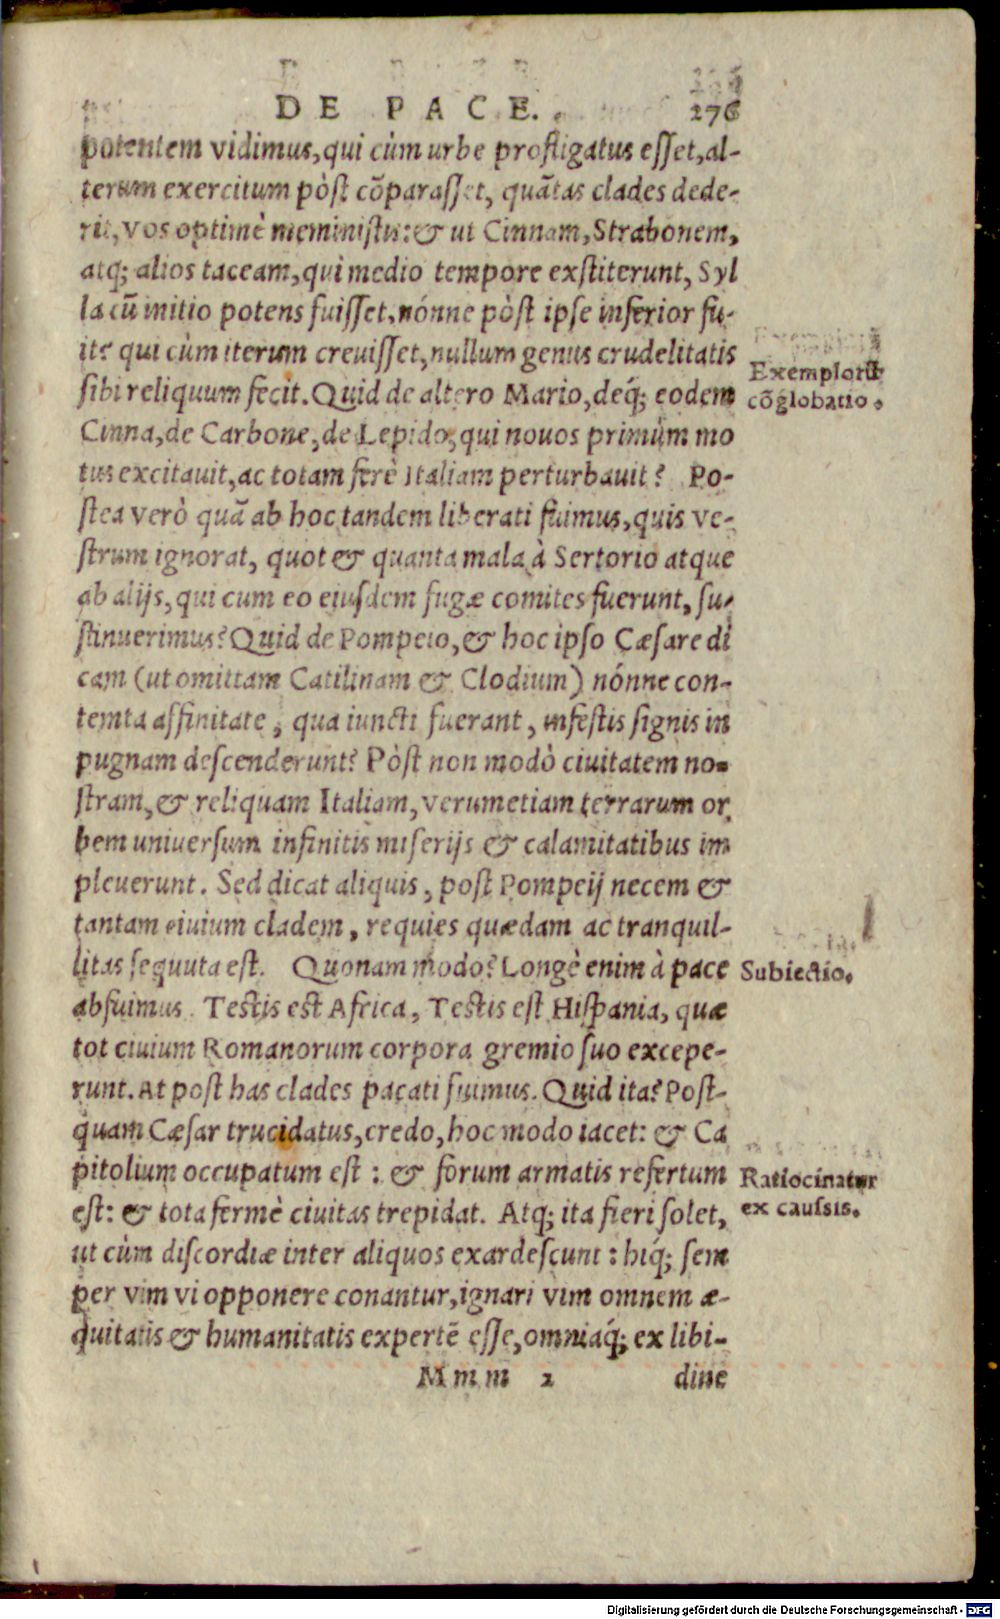 DE PACE. 276
potentem vidimus, qui cùm urbe profligatus esset, al-
terum exercitum pòst cõparasset, quãtas clades dede-
rit, vos optimè meministis: & ut Cinnam, Strabonem,
atq; alios taceam, qui medio tempore exstiterunt, Syl
la cũ initio potens fuisset, nónne pòst ipse inferior fu-
it? qui cùm iterum crevisset, nullum genus crudelitatis
sibi reliquum fecit. Quid de altero Mario, deq́; eodem
Exemplorũ
cõglobatio.
Cinna, de Carbone, de Lepido, qui nouos primùm mo
tus excitauit, ac totam ferè Italiam perturbavit? Po-
stea verò quã ab hoc tandem liberati fuimus, quis ve-
strum ignorat, quot & quanta mala à Sertorio atque
ab alijs, qui cum eo eiusdem fugæ comites fuerunt, su-
stinuerimus? Quid de Pompeio, & hoc ipso Cæsare di
cam (ut omittam Catilinam & Clodium) nónne con-
temta affinitate, qua iuncti fuerant, infestis signis in
pugnam descenderunt? Pòst non modò ciuitatem no-
stram, & reliquam Italiam, verumetiam terrarum or
bem universum infinitis miserijs & calamitatibus im
pleuerunt. Sed dicat aliquis, post Pompeij necem &
tantam ciuium cladem, requies quædam ac tranquil-
litas sequuta est. Quonam modo? Longè enim à pace
Subiectio.
absuimus. Testis est Africa, Testis est Hispania, quæ
tot ciuium Romanorum corpora gremio suo excepe-
runt. At post has clades pacati fuimus. Quid ita? Post-
quam Cæsar trucidatus, credo, hoc modo iacet: & Ca
pitolium occupatum est: & forum armatis refertum
Ratiocinatur
ex caussis.
est: & tota fermè ciuitas trepidat. Atq; ita fieri solet,
ut cùm discordiæ inter aliquos exardescunt: hiq́; sem
per vim vi opponere conantur, ignari vim omnem æ-
quitatis & humanitatis expertẽ esse, omniaq́; ex libi-
Mmm 2 dine
Digitalisierung gefördert durch die Deutsche Forschungsgemeinschaft - DFG